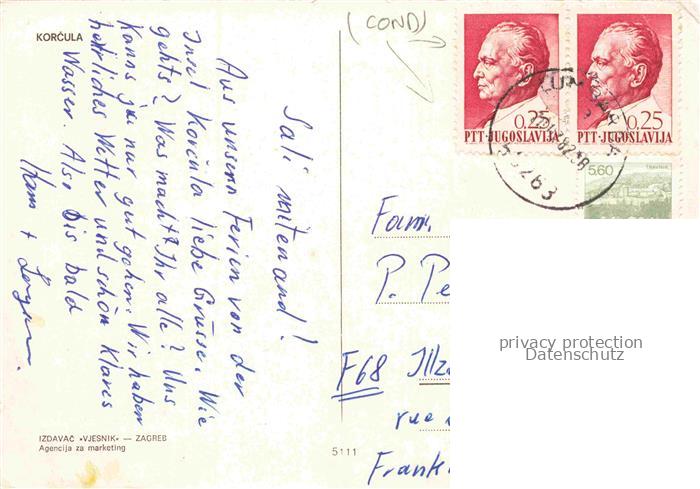 KORČULA
(COND)
0.25
PTT-JUGOSLAVIJA
0.25
PTT-JUGOSLAVIJA
5,60
50263
Sali mitenand!
Aus unsern Ferien von der
Insel Korčula liebe Grüsse. Wie
gehts? Was macht Ihr alle? Uns
kanns ja nur gut gehen. Wir haben
herrliches Wetter und schön klares
Wasser. Also bis bald
Fam.
P. Pe
F68 Illz
rue
Frank
privacy protection
Datenschutz
IZDAVAČ »VJESNIK« — ZAGREB
Agencija za marketing
5111